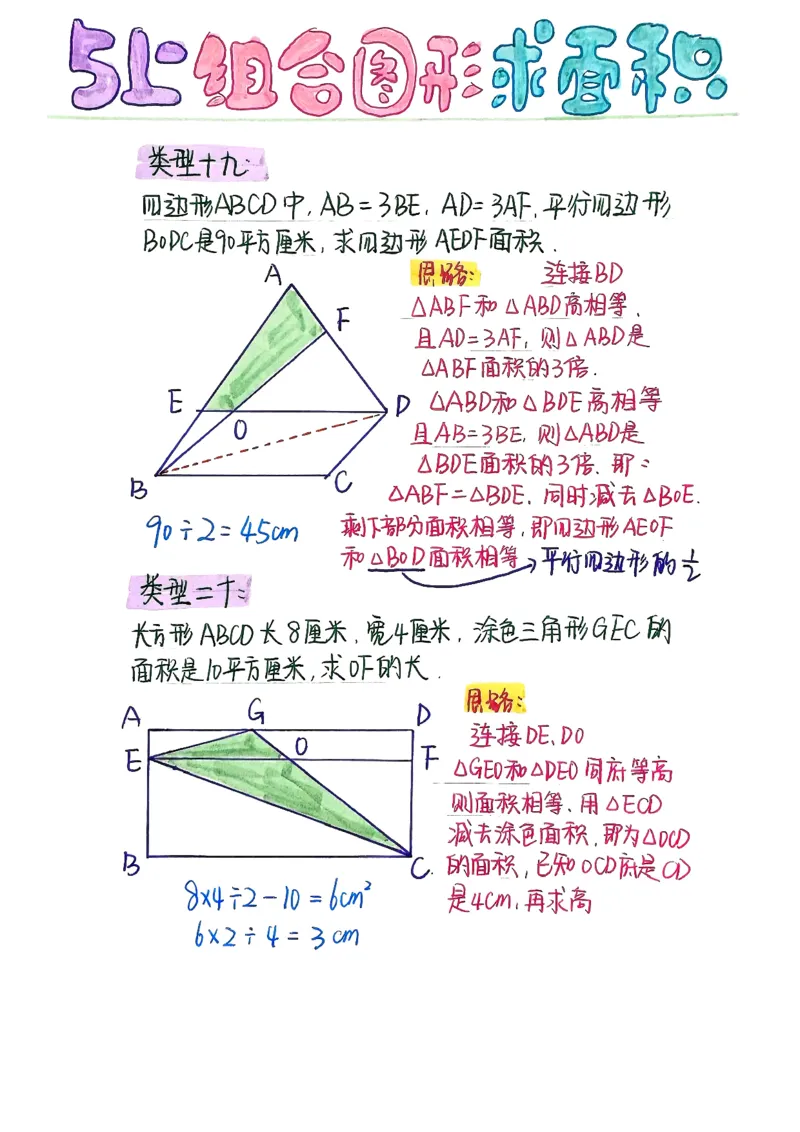 5上组合图形求面积
类型十九:
四边形ABCD中,AB=3BE,AD=3AF,平行四边形
BODC是90平方厘米,求四边形AEDF面积.
思路: 连接BD
△ABF和△ABD高相等,
且AD=3AF,则△ABD是
△ABF面积的3倍.
△ABD和△BDE高相等
且AB=3BE,则△ABD是
△BDE面积的3倍.即:
△ABF=△BDE,同时减去△BOE.
剩下部分面积相等,即四边形AEOF
和△BOD面积相等→平行四边形的1/2
A
F
E
O
D
B
C
90÷2=45cm
类型二十:
长方形ABCD长8厘米,宽4厘米,涂色三角形GEC的
面积是10平方厘米,求OF的长.
思路:
连接DE、DO
△GEO和△DEO同底等高
则面积相等、用△ECD
减去涂色面积,即为△OCD
的面积,已知OCD底是CD
是4cm,再求高
A
G
D
E
O
F
B
C
8×4÷2-10=6cm²
6×2÷4=3cm